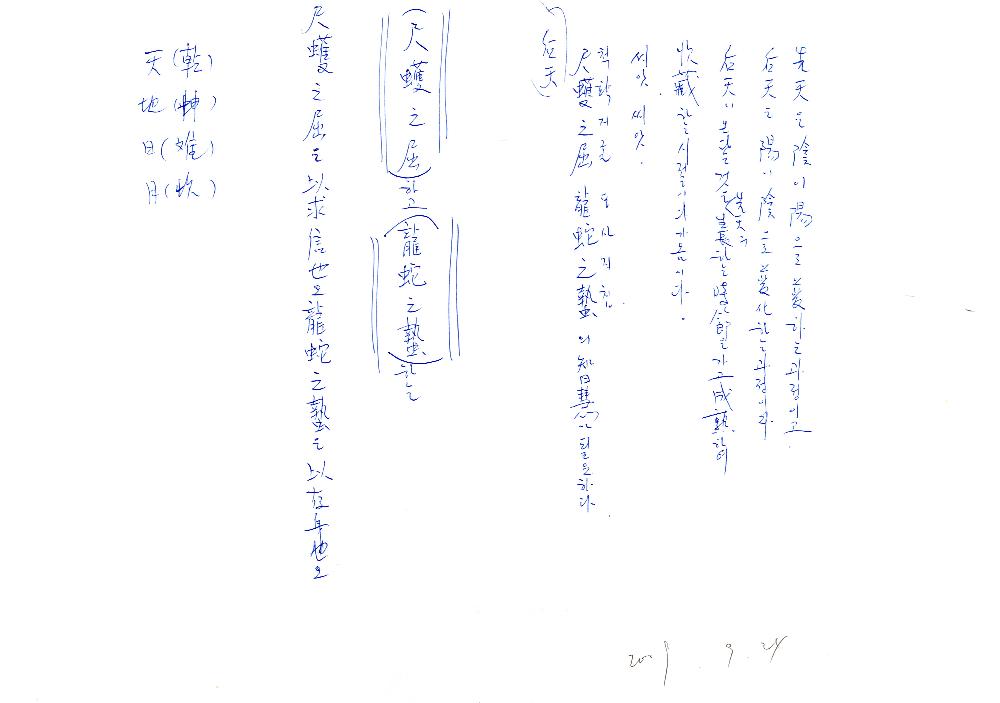 先天은 陰이 陽으로 変하는 과정이고
后天은 陽이 陰으로 変化하는 과정이다
后天이 오는 것은 先天의 生長하는 때를 가고 成熟하여
收藏하는 시절이 되기 때문이다.
씨앗 씨앗.
척확지굴 용사지칩
尺蠖之屈 龍蛇之蟄의 智慧가 필요하다.
(后天)
(尺蠖之屈)하고 (龍蛇之蟄)하는
尺蠖之屈은 以求信也오 龍蛇之蟄은 以存身也오
天(乾)
地(坤)
日(離)
月(坎)
9. 24